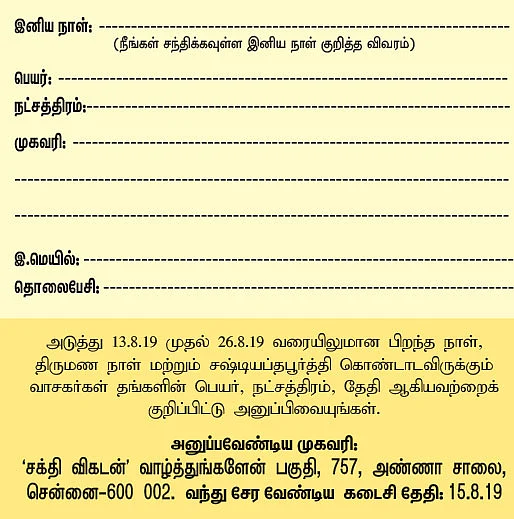 இனிய நாள்: ---------------------------------------------------------------
(நீங்கள் சந்திக்கவுள்ள இனிய நாள் குறித்த விவரம்)
பெயர்: ---------------------------------------------------------------------
நட்சத்திரம்:------------------------------------------------------------------
முகவரி: -------------------------------------------------------------------
----------------------------------------------------------------------------
----------------------------------------------------------------------------
இ.மெயில்: -----------------------------------------------------------------
தொலைபேசி: --------------------------------------------------------------
அடுத்து 13.8.19 முதல் 26.8.19 வரையிலுமான பிறந்த நாள்,
திருமண நாள் மற்றும் சஷ்டியப்தபூர்த்தி கொண்டாடவிருக்கும்
வாசகர்கள் தங்களின் பெயர், நட்சத்திரம், தேதி ஆகியவற்றைக்
குறிப்பிட்டு அனுப்பிவையுங்கள்.
அனுப்பவேண்டிய முகவரி:
‘சக்தி விகடன்’ வாழ்த்துங்களேன் பகுதி, 757, அண்ணா சாலை,
சென்னை-600 002. வந்து சேர வேண்டிய கடைசி தேதி: 15.8.19